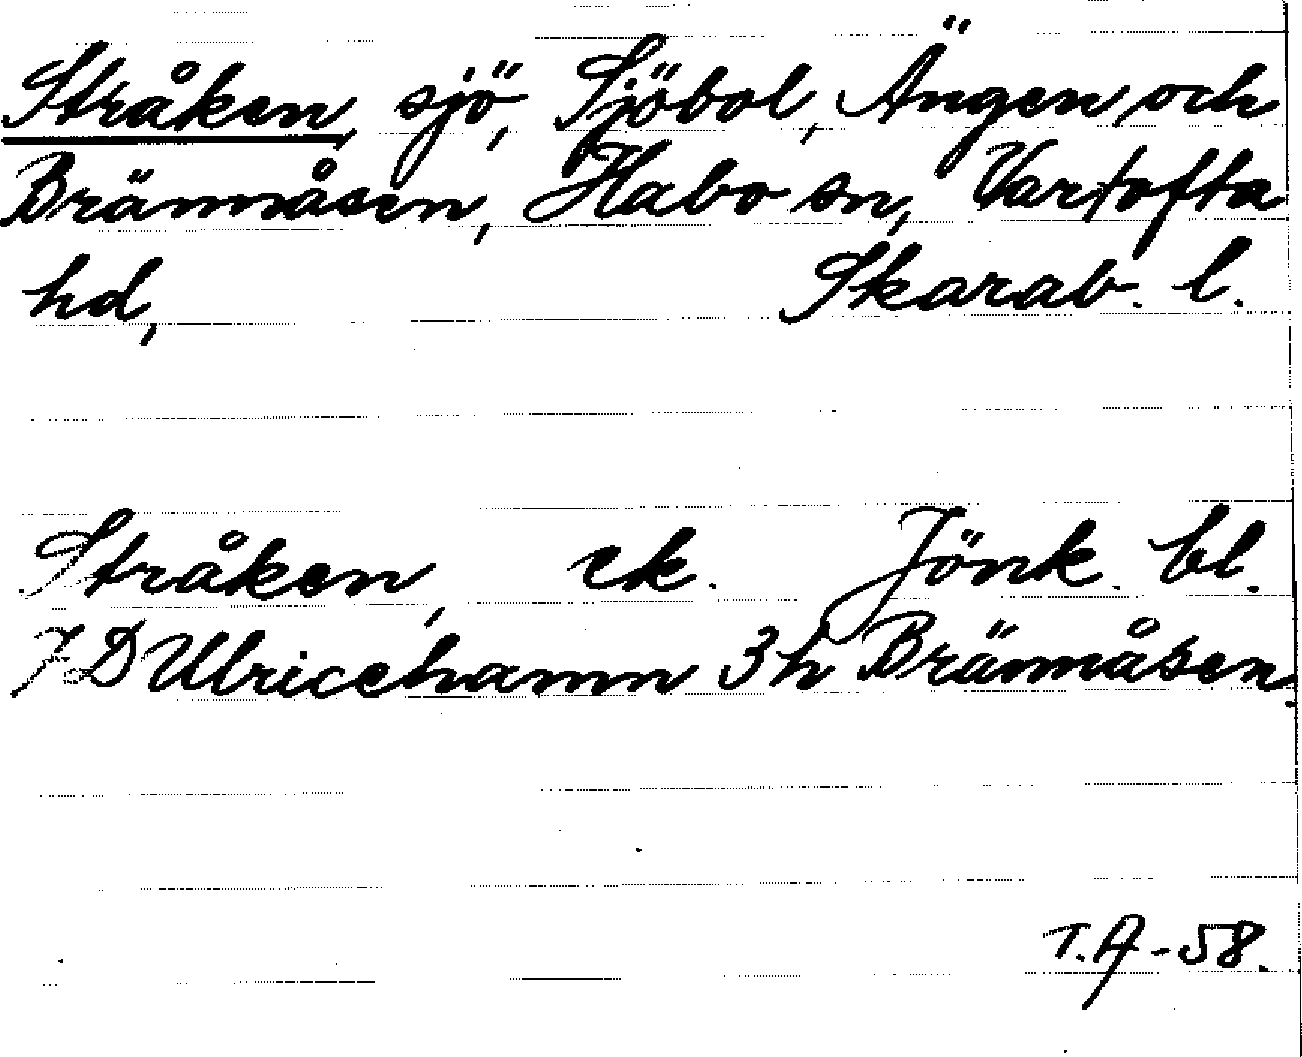 Stråken, sjö, Sjöbol, Ängen och
Brännåsen, Habo sn, Vartofta
hd, Skarab. l.
Stråken, ek. Jönk. bl.
7 D Ulricehamn 3h Brännåsen.
T.A-58.